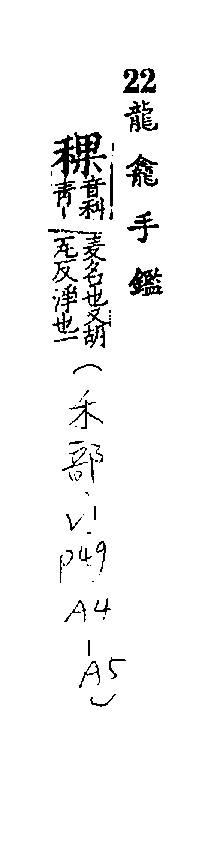 22龍龕手鑑
稞音科青｜麦名也又胡瓦反淨也一（禾部·V1·P49·A4－A5）